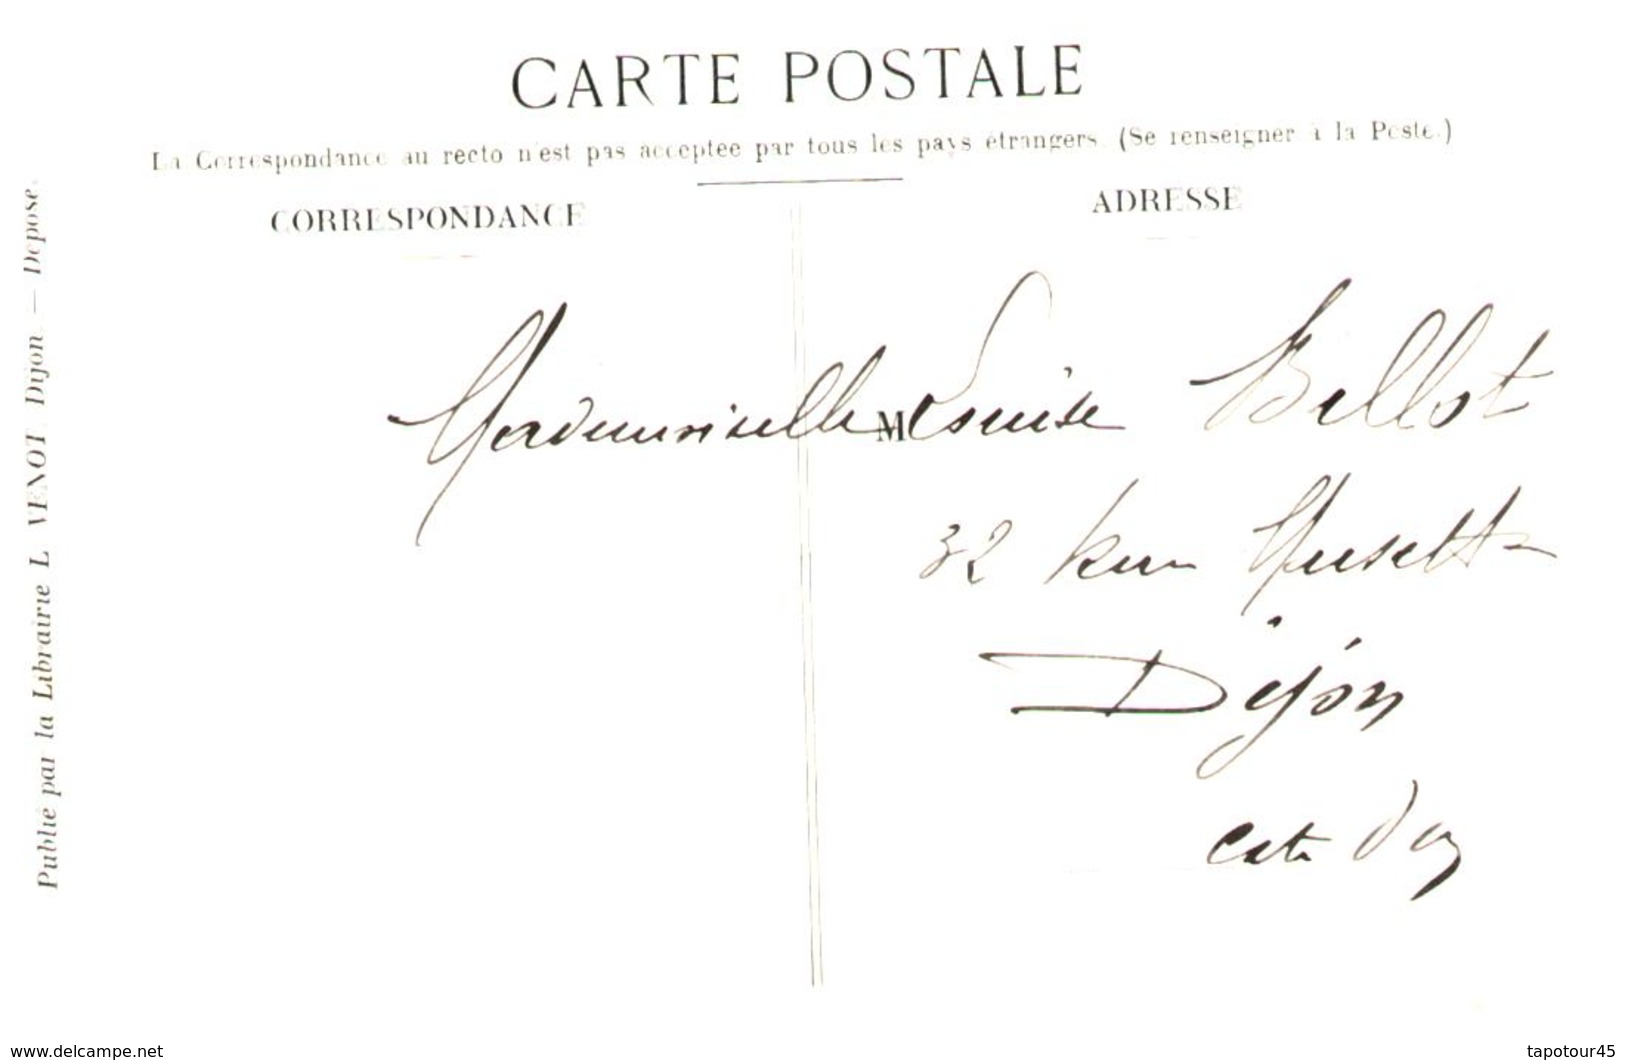 CARTE POSTALE
La Correspondance au recto n'est pas acceptée par tous les pays étrangers. (Se renseigner à la Poste.)
CORRESPONDANCE
ADRESSE
Mademoiselle M Louise Bellot
32 Rue Musette
Dijon
Cote d'or
Publié par la Librairie L VENOT, Dijon. — Déposé.
www.delcampe.net
tapotour45